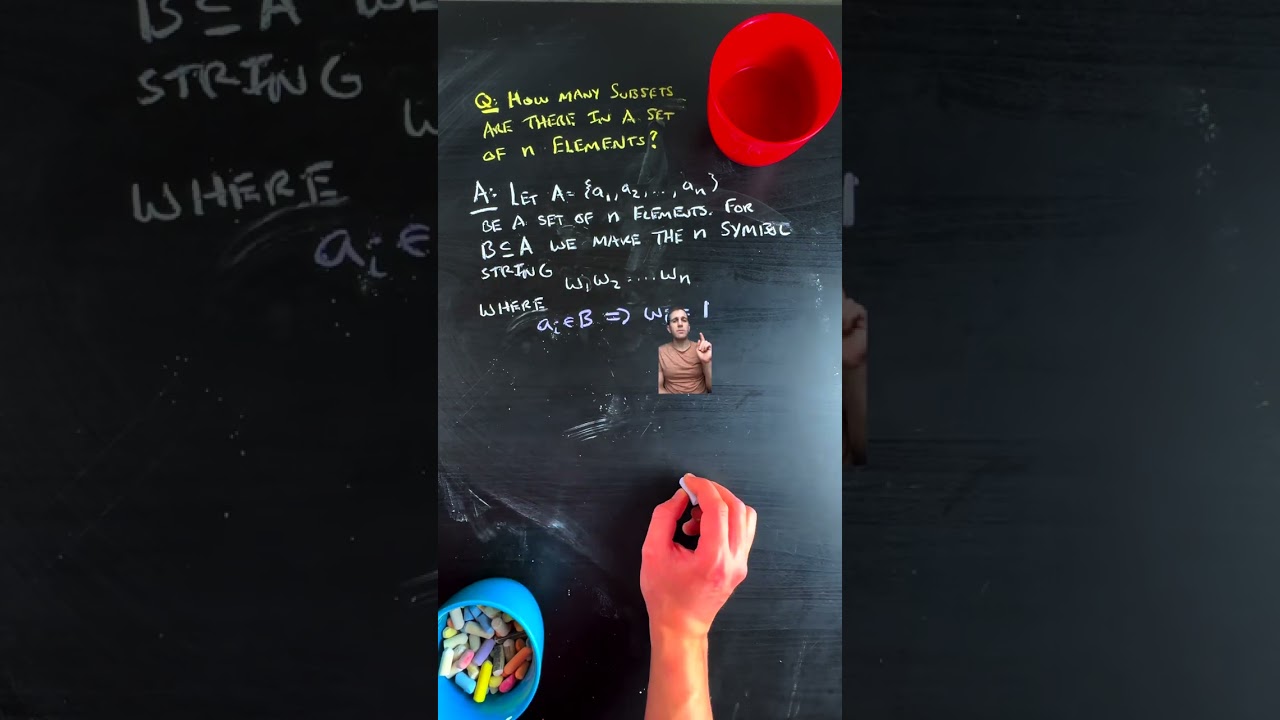 Q: HOW MANY SUBSETS
ARE THERE IN A SET
OF n ELEMENTS?
A: LET A = {a₁, a₂, ..., aₙ}
BE A SET OF n ELEMENTS. FOR
B ⊆ A WE MAKE THE n SYMBOL
STRING
w₁w₂ ... wₙ
WHERE
aᵢ ∈ B ⇒ wᵢ = 1